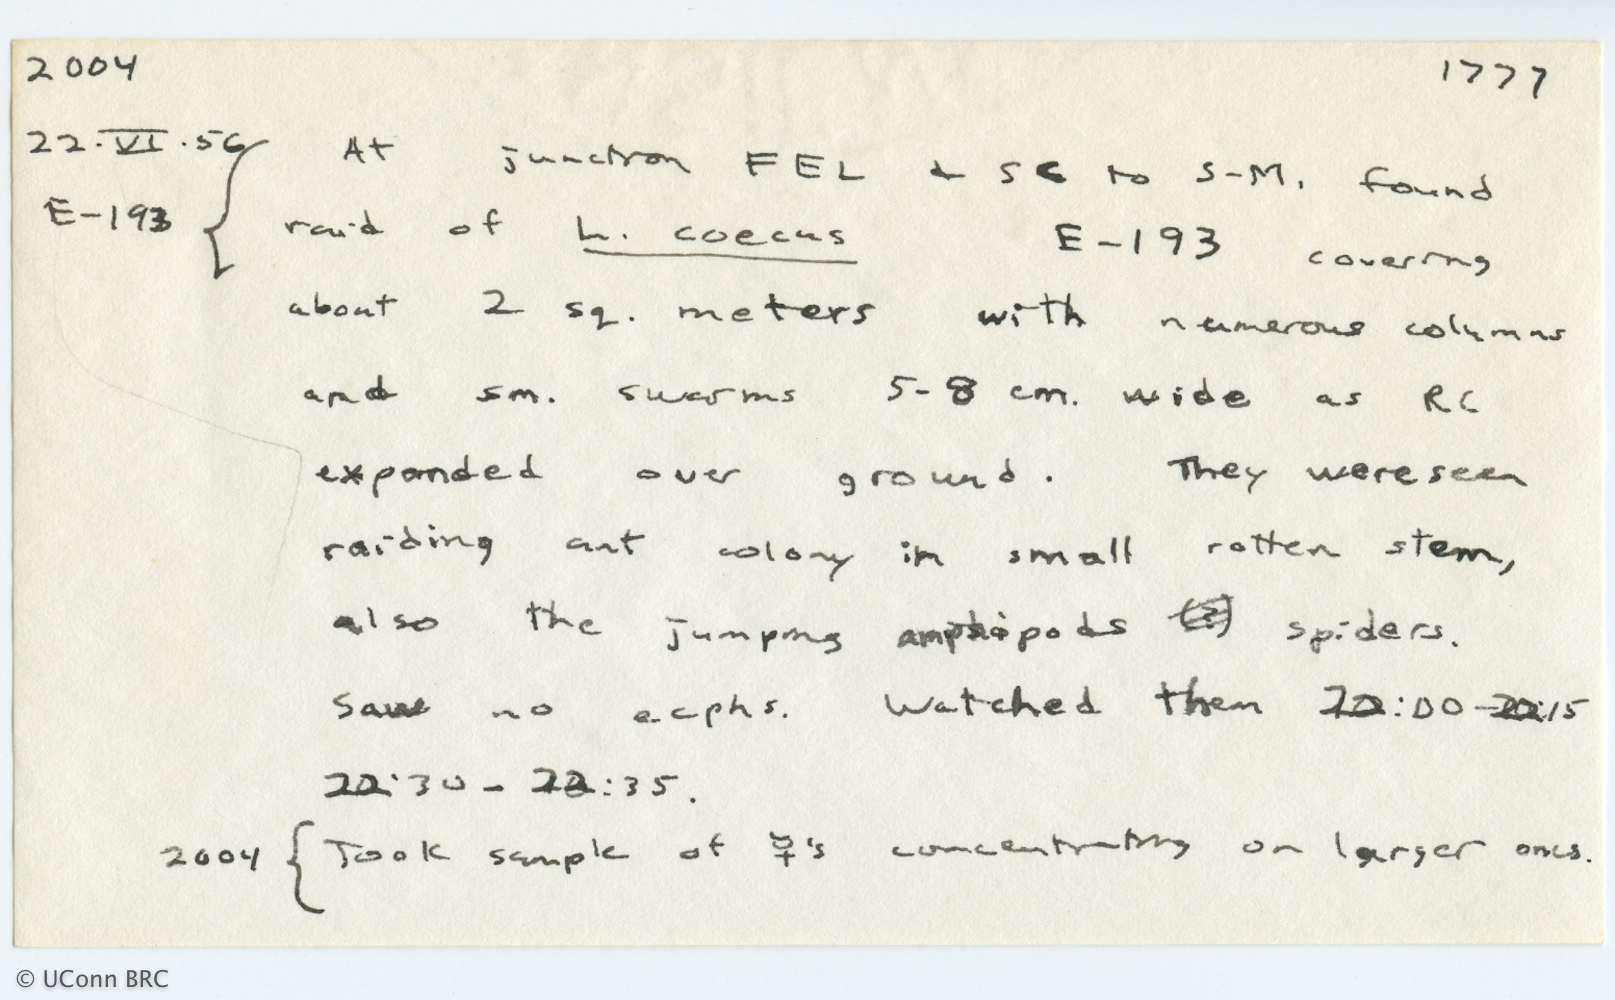 2004 1777
22·VI·56 At junction FEL & SC to S-M. found
E-193 raid of L. coecus E-193 covering
about 2 sq. meters with numerous columns
and sm. swarms 5-8 cm. wide as RC
expanded over ground. They were seen
raiding ant colony in small rotten stem,
also the jumping amphipods (3) spiders.
Saw no ecphs. Watched them 22:00-22:15
22:30 - 22:35.
2004 Took sample of ☿'s concentrating on larger ones.
© UConn BRC